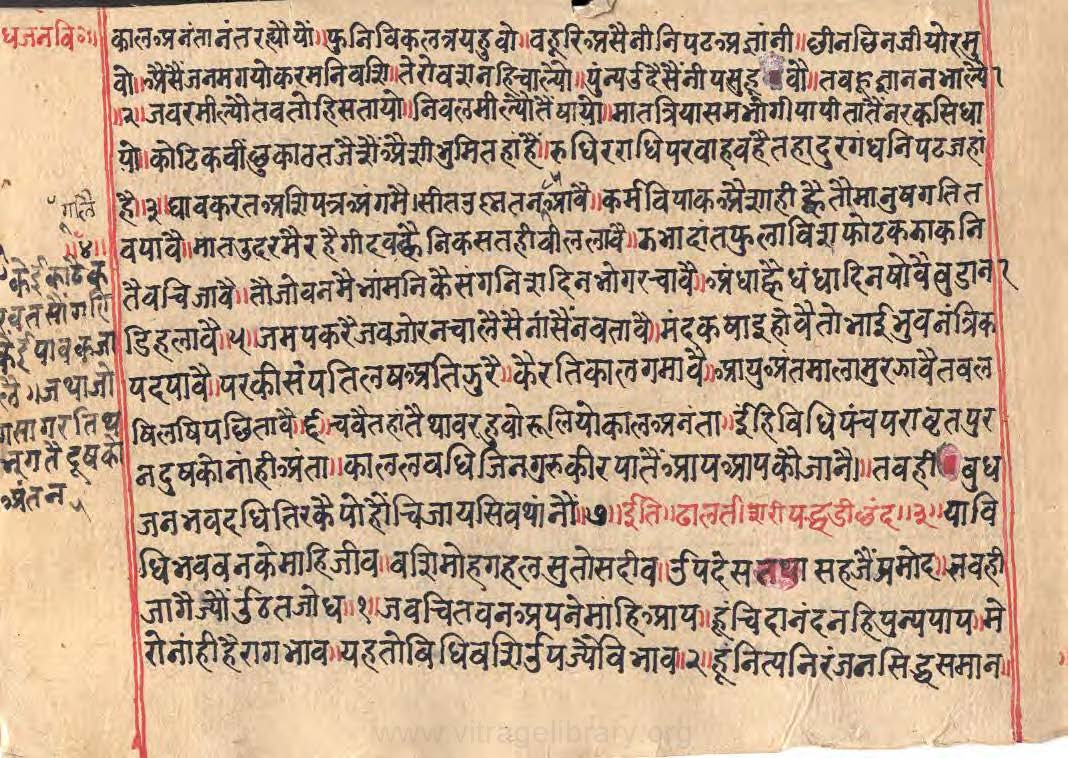 धजनविषै॥ काल अनंतानंत रह्यौ यों॥ फुनि विकलत्रय हुवो॥ बहूरि असैनी निपट अज्ञानी॥ छीन छिन जीयो रमु
वो॥ अैसैं जनम गयो करमनि वशि॥ तेरो वश नहि चाल्यौ॥ पुंन्य उदै सैंनी पसु हू वौ॥ तब हू ज्ञान न भाल्यै
॥२॥ जबर मील्यौ तब तोहि सतायो॥ निबल मील्यौ तैं षायो॥ मात त्रिया सम भोगी पापी तातैं नरक सिधा
यो॥ कोटिक बीछु काटत जैसै अैसी भुमि तहां है॥ रुधिर राधि परवाह वहै तहा दुरगंध निपट जहां
है॥३॥ घाव करत असिपत्र अंगमै। सीत उश्न तन गालै आवै॥ कर्म विपाक अैसा ही ह्वै तौ मानुष गति त
॥४॥ ब पावै॥ मात उदर मै रहै गीदवह्वै निकसत ही वीललावै॥ रुभा दांत फुला विश फोटक काक नि
तै बचि जावै॥ तौ जोवन मै भांमनि कै संग निश दिन भोग रचावै॥ अंधा ह्वै धंधा दिन षोवै बुढा ना
डि हलावै॥५॥ जम पकरै जब जोर न चालै सैनां सैंन बतावै॥ मंद कषाइ होवै तो भाई भुवनंत्रिक
पद पावै॥ पर की संपति लष अति झुरै॥ कै रति काल गमावै॥ आयु अंत माला मुरझावै तब ल
षि लषि पछितावै॥६॥ चवै तहां तै थावर हुवो रूलियो काल अनंता॥ ईहि विधि पंच परावृत पुर
न दुष कौ नांही अंता॥ काल लबधि जिन गुरु की रपा तैं आय आप कौ जानै॥ तब ही बुध
जन भवदधि तिरकै पोहौंचि जाय सिव थांनौ॥७॥ ईति॥ ढाल तीसरी पद्धडी छंद॥३॥ या वि
धि भव वन के माहि जीव॥ वसि मोह गहल सुतो सदीव॥ उपदेस तथा सहजैं प्रमोद॥ तब ही
जागै ज्यौं उठत जोध॥१॥ जब चितवन अपने मांहि आप॥ हूं चिदानंद नहि पुन्य पाप॥ मे
रो नांही है राग भाव॥ यह तो विधि वसि उपज्यै विभाव॥२॥ हूं नित्य निरंजन सिद्ध समान॥
कोई काटै क
रवत सौं गहि
कोई पावक जा
लै॥ जथा जो
ग सागर तिथ
भुगतै दूष को
अंत न
www.vitragelibrary.org